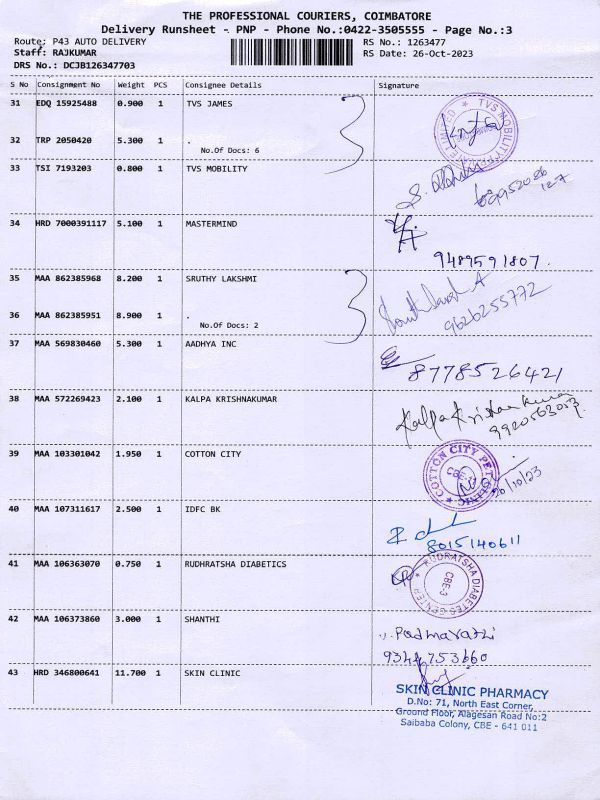 THE PROFESSIONAL COURIERS, COIMBATORE
Delivery Runsheet - PNP - Phone No.:0422-3505555 - Page No.:3
Route: P43 AUTO DELIVERY RS No.: 1263477
Staff: RAJKUMAR RS Date: 26-Oct-2023
DRS No.: DCJB126347703
S No Consignment No Weight PCS Consignee Details Signature
31 EDQ 15925488 0.900 1 TVS JAMES
TVS MOBILITY
LIMITED
32 TRP 2050420 5.300 1 .
No.Of Docs: 6
33 TSI 7193203 0.800 1 TVS MOBILITY
34 HRD 7000391117 5.100 1 MASTERMIND
9489591807.
35 MAA 862385968 8.200 1 SRUTHY LAKSHMI
36 MAA 862385951 8.900 1 .
No.Of Docs: 2
9626255772
37 MAA 569830460 5.300 1 AADHYA INC
8778526421
38 MAA 572269423 2.100 1 KALPA KRISHNAKUMAR
Kalpa Krishna kumar
9920563053
39 MAA 103301042 1.950 1 COTTON CITY
COTTON CITY
CBE-
26/10/23
40 MAA 107311617 2.500 1 IDFC BK
8015140611
41 MAA 106363070 0.750 1 RUDHRATSHA DIABETICS
RUDRATSHA DIABETES CENTER
CBE-3
42 MAA 106373860 3.000 1 SHANTHI
Padmavathi
9344753660
43 HRD 346800641 11.700 1 SKIN CLINIC
SKIN CLINIC PHARMACY
D.No: 71, North East Corner,
Ground Floor, Alagesan Road No:2
Saibaba Colony, CBE - 641 011